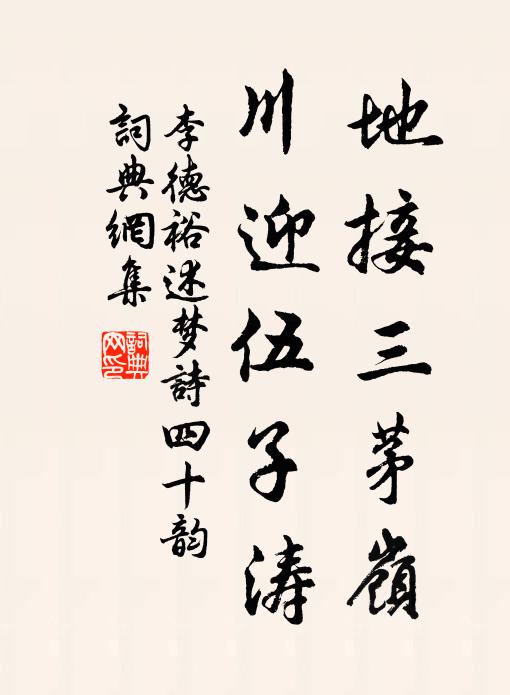 地接三茅嶺
川迎伍子濤
李德裕述梦詩四十韵
詞典網集
詞典網印